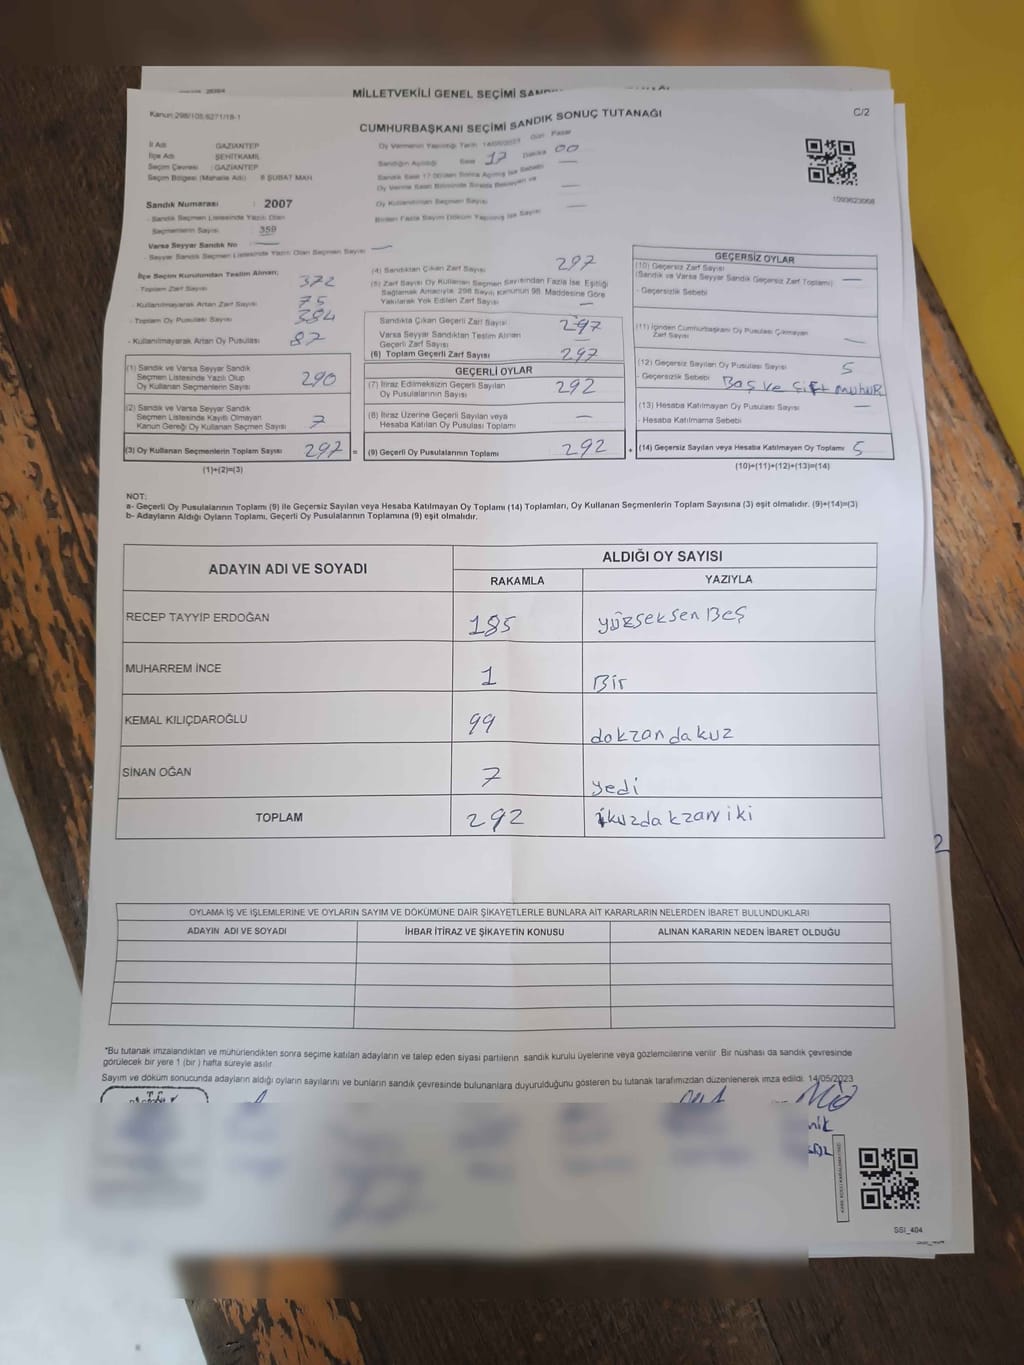 MİLLETVEKİLİ GENEL SEÇİMİ
Kanun 298/105,6271/18-1
CUMHURBAŞKANI SEÇİMİ SANDIK SONUÇ TUTANAĞI
C/2
İl Adı GAZİANTEP
İlçe Adı ŞEHİTKAMİL
Seçim Çevresi : GAZİANTEP
Seçim Bölgesi (Mahalle Adı) 8 ŞUBAT MAH.
Oy Vermenin Yapıldığı Tarih: 14/05/2023 Gün Pazar
Sandığın Açıldığı Saat 17 Dakika 00
Sandık Saat 17:00'den Sonra Açılmış İse Sebebi —
Oy Verme Saati Bitiminde Sırada Bekleyen ve
Oy Kullandırılan Seçmen Sayısı —
Birden Fazla Sayım Döküm Yapılmış İse Sayısı —
Sandık Numarası : 2007
- Sandık Seçmen Listesinde Yazılı Olan
Seçmenlerin Sayısı : 359
Varsa Seyyar Sandık No :
- Seyyar Sandık Seçmen Listesinde Yazılı Olan Seçmen Sayısı —
İlçe Seçim Kurulundan Teslim Alınan;
- Toplam Zarf Sayısı 372
- Kullanılmayarak Artan Zarf Sayısı 75
- Toplam Oy Pusulası Sayısı 384
- Kullanılmayarak Artan Oy Pusulası 87
(1) Sandık ve Varsa Seyyar Sandık
Seçmen Listesinde Yazılı Olup
Oy Kullanan Seçmenlerin Sayısı 290
(2) Sandık ve Varsa Seyyar Sandık
Seçmen Listesinde Kayıtlı Olmayan
Kanun Gereği Oy Kullanan Seçmen Sayısı 7
(3) Oy Kullanan Seçmenlerin Toplam Sayısı 297 =
(1)+(2)=(3)
(4) Sandıktan Çıkan Zarf Sayısı 297
(5) Zarf Sayısı Oy Kullanan Seçmen Sayısından Fazla İse, Eşitliği
Sağlamak Amacıyla, 298 Sayılı Kanunun 98. Maddesine Göre
Yakılarak Yok Edilen Zarf Sayısı —
Sandıkta Çıkan Geçerli Zarf Sayısı 297
Varsa Seyyar Sandıktan Teslim Alınan
Geçerli Zarf Sayısı —
(6) Toplam Geçerli Zarf Sayısı 297
GEÇERLİ OYLAR
(7) İtiraz Edilmeksizin Geçerli Sayılan
Oy Pusulasının Sayısı 292
(8) İtiraz Üzerine Geçerli Sayılan veya
Hesaba Katılan Oy Pusulası Toplamı —
(9) Geçerli Oy Pusulalarının Toplamı 292 +
GEÇERSİZ OYLAR
(10) Geçersiz Zarf Sayısı
(Sandık ve Varsa Seyyar Sandık Geçersiz Zarf Toplamı) —
- Geçersizlik Sebebi
(11) İçinden Cumhurbaşkanı Oy Pusulası Çıkmayan
Zarf Sayısı —
(12) Geçersiz Sayılan Oy Pusulası Sayısı 5
- Geçersizlik Sebebi Boş ve çift mühür
(13) Hesaba Katılmayan Oy Pusulası Sayısı —
- Hesaba Katılmama Sebebi
(14) Geçersiz Sayılan veya Hesaba Katılmayan Oy Toplamı 5
(10)+(11)+(12)+(13)=(14)
NOT:
a- Geçerli Oy Pusulalarının Toplamı (9) ile Geçersiz Sayılan veya Hesaba Katılmayan Oy Toplamı (14) Toplamları, Oy Kullanan Seçmenlerin Toplam Sayısına (3) eşit olmalıdır. (9)+(14)=(3)
b- Adayların Aldığı Oyların Toplamı, Geçerli Oy Pusulalarının Toplamına (9) eşit olmalıdır.
ADAYIN ADI VE SOYADI
ALDIĞI OY SAYISI
RAKAMLA YAZIYLA
RECEP TAYYİP ERDOĞAN 185 yüzseksen Beş
MUHARREM İNCE 1 Bir
KEMAL KILIÇDAROĞLU 99 dokzandakuz
SİNAN OĞAN 7 yedi
TOPLAM 292 ikuzdakzan iki
2
OYLAMA İŞ VE İŞLEMLERİNE VE OYLARIN SAYIM VE DÖKÜMÜNE DAİR ŞİKAYETLERLE BUNLARA AİT KARARLARIN NELERDEN İBARET BULUNDUKLARI
ADAYIN ADI VE SOYADI İHBAR İTİRAZ VE ŞİKAYETİN KONUSU ALINAN KARARIN NEDEN İBARET OLDUĞU
*Bu tutanak imzalandıktan ve mühürlendikten sonra seçime katılan adayların ve talep eden siyasi partilerin sandık kurulu üyelerine veya gözlemcilerine verilir. Bir nüshası da sandık çevresinde
görülecek bir yere 1 (bir ) hafta süreyle asılır.
Sayım ve döküm sonucunda adayların aldığı oyların sayılarını ve bunların sandık çevresinde bulunanlara duyurulduğunu gösteren bu tutanak tarafımızdan düzenlenerek imza edildi. 14/05/2023
SSI_404